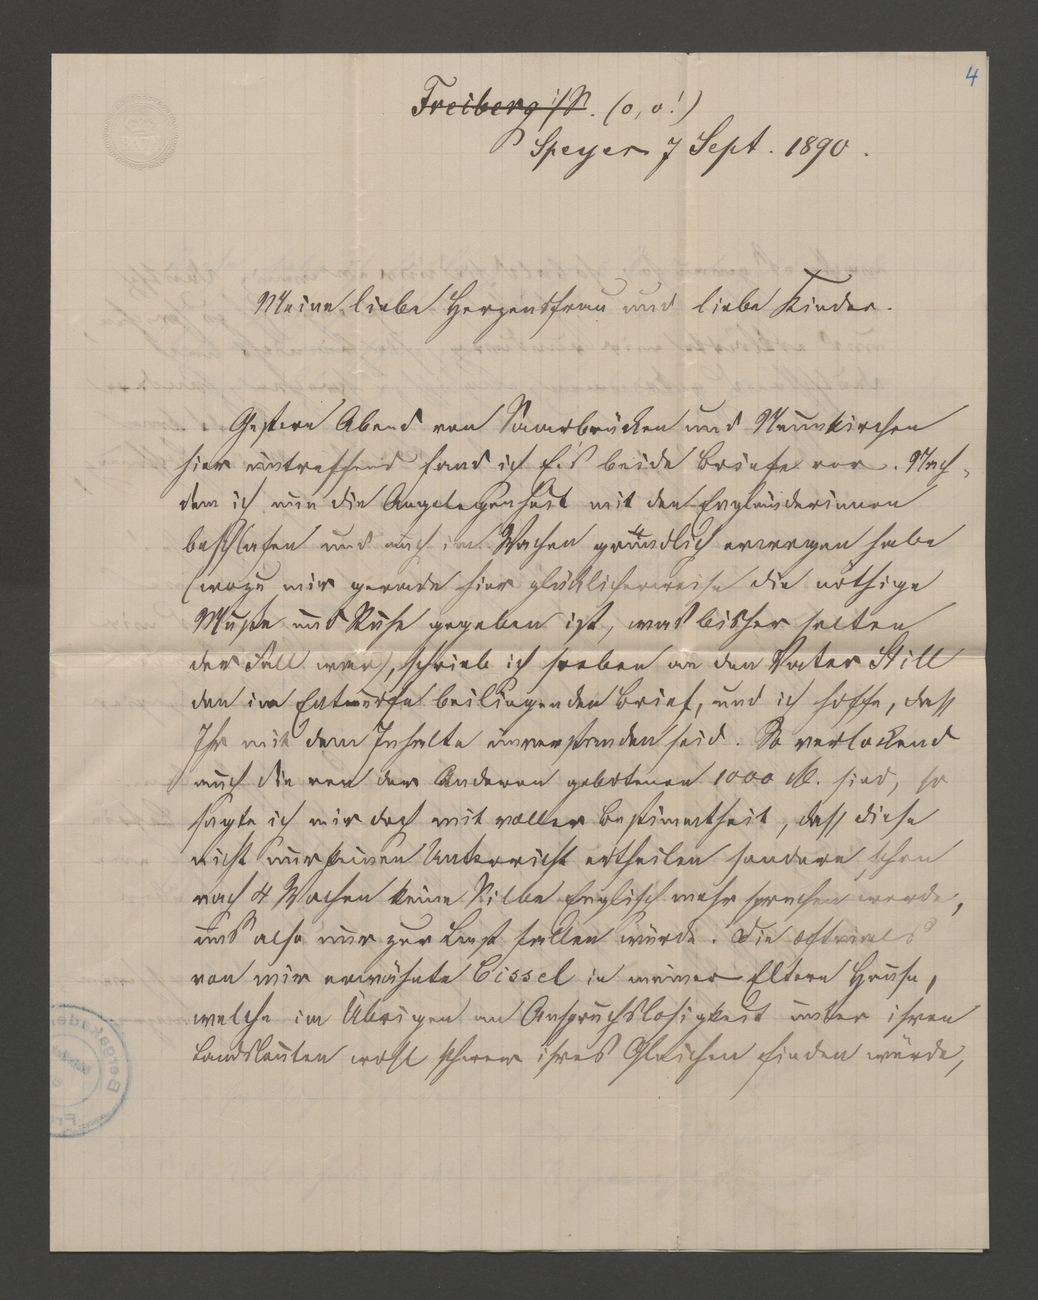 4
Freiberg i/S. (o, o!)
Speyer 7 Sept. 1890.
Meine liebe Herzensfrau und liebe Kinder.
Gestern Abend von Saarbrücken und Neunkirchen
hier eintreffend fand ich E.'s beide Briefe vor. Nach-
dem ich nun die Angelegenheit mit den Engländerinnen
beschlafen und auch im Wachen gründlich erwogen habe
(wozu mir gerade hier glücklicherweise die nöthige
Muße und Ruhe gegeben ist, was bisher selten
der Fall war), schrieb ich soeben an den Vater Still
den im Entwurfe beiliegenden Brief, und ich hoffe, dass
Ihr mit dem Inhalte einverstanden seid. So verlockend
auch die von der Anderen gebotenen 1000 M. sind, so
sagte ich mir doch mit voller Bestimmtheit, dass diese
nicht nur keinen Unterricht ertheilen sondern schon
nach 4 Wochen keine Silbe Englisch mehr sprechen werde,
uns also nur zur Last fallen würde. Die oftmals
von mir erwähnte Cissel in meiner Eltern Hause,
welche im Übrigen an Anspruchslosigkeit unter ihren
Landsleuten wohl schwer ihres Gleichen finden würde,